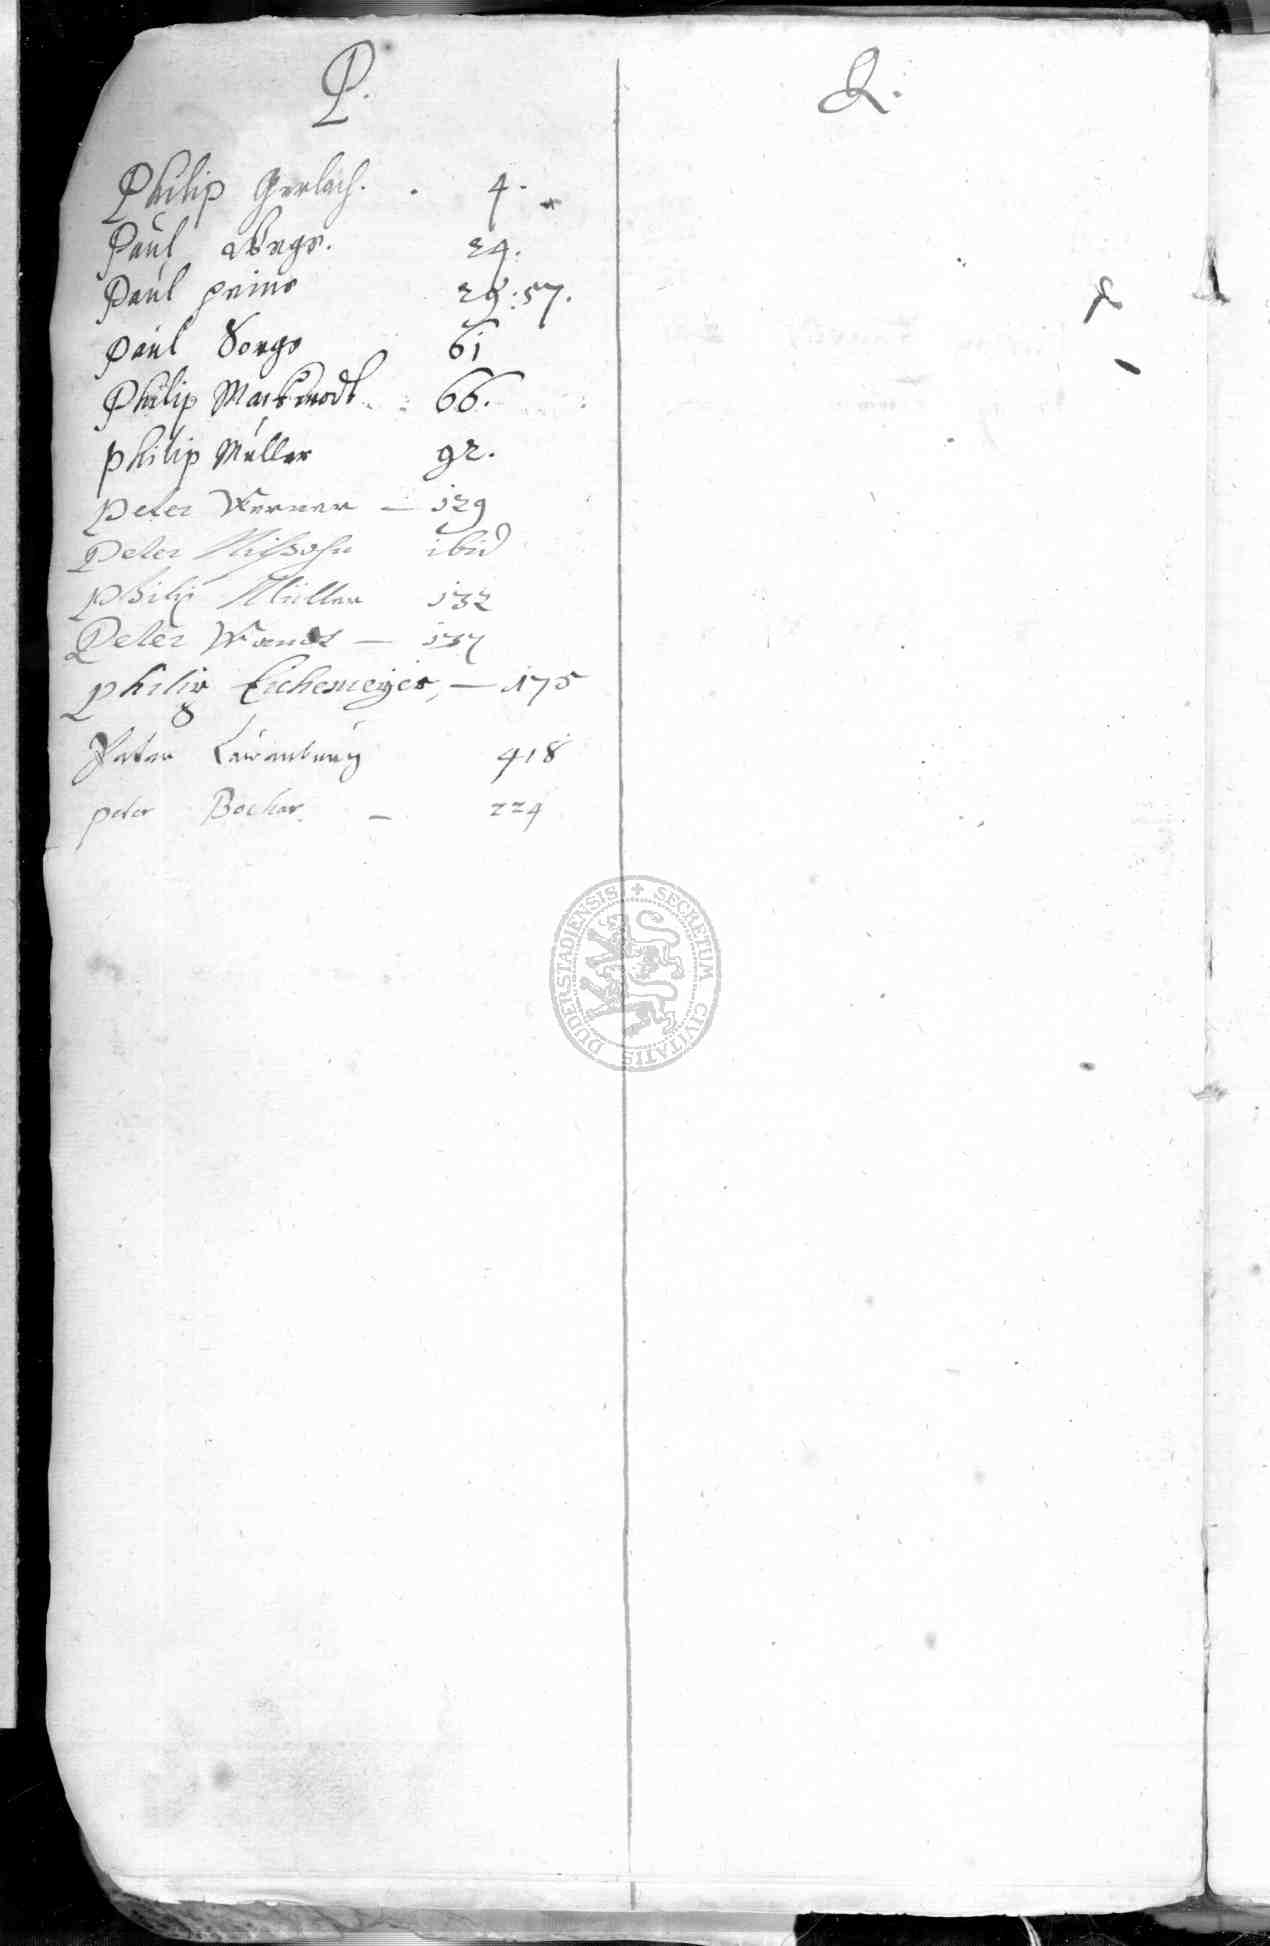 P.
Philip Gerlach. . 4.
Paul 24.
Paul prins 29:57.
paul Sorgs 61
Philip Markwordt 66.
philip Müller 92.
Peter Werner — 129
Peter ibid
Philip Müller 132
Peter Wandt — 137
philip Eichemeyer, — 175
Peter Lauenburg 418
peter Bockar — 224
Q.
DUDERSTADIENSIS + SECRETUM CIVITATIS